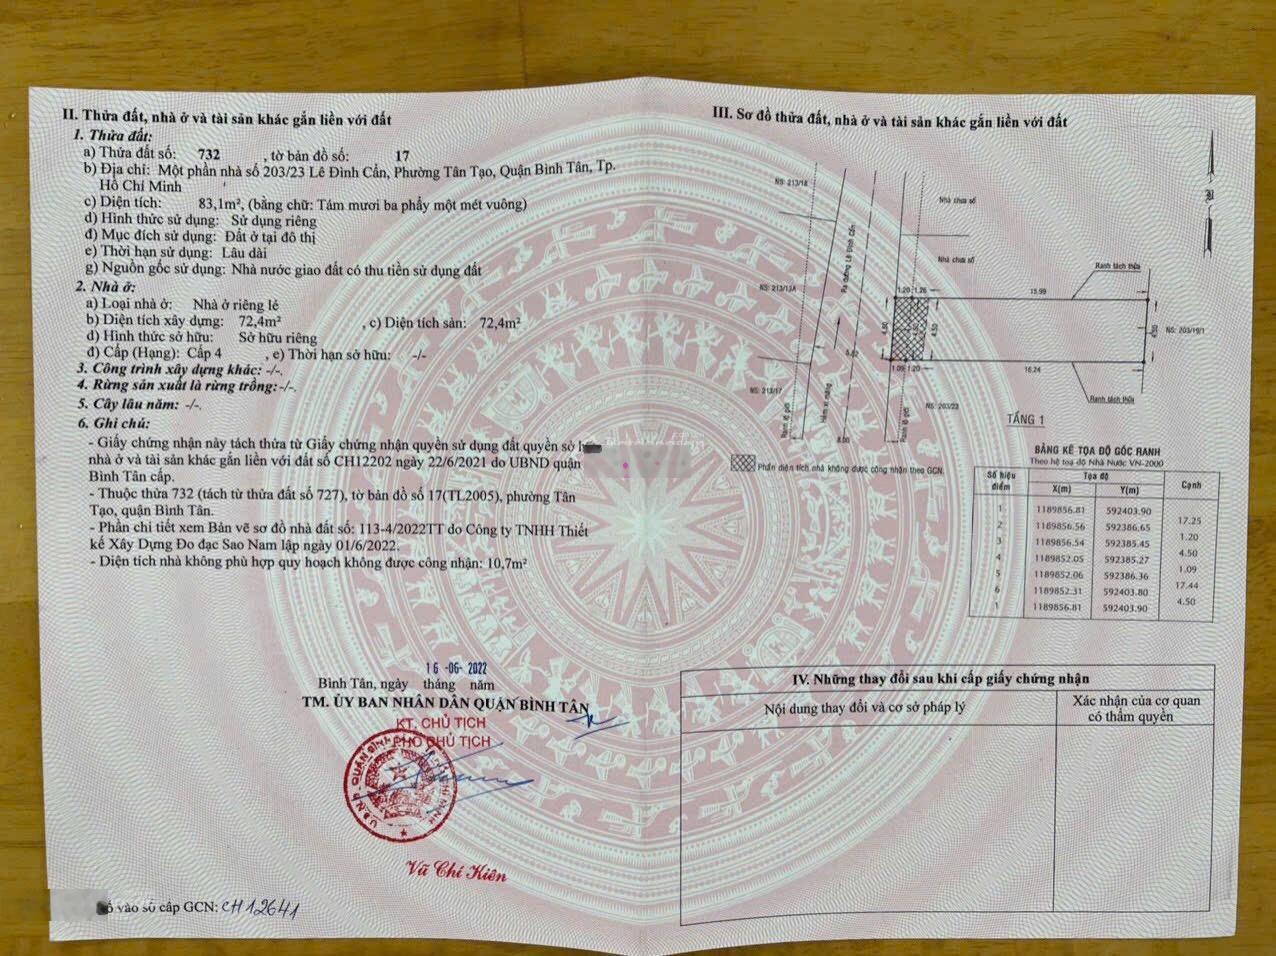 II. Thửa đất, nhà ở và tài sản khác gắn liền với đất
1. Thửa đất:
a) Thửa đất số: 732 , tờ bản đồ số: 17
b) Địa chỉ: Một phần nhà số 203/23 Lê Đình Cẩn, Phường Tân Tạo, Quận Bình Tân, Tp.
Hồ Chí Minh
c) Diện tích: 83,1m², (bằng chữ: Tám mươi ba phẩy một mét vuông)
d) Hình thức sử dụng: Sử dụng riêng
đ) Mục đích sử dụng: Đất ở tại đô thị
e) Thời hạn sử dụng: Lâu dài
g) Nguồn gốc sử dụng: Nhà nước giao đất có thu tiền sử dụng đất
2. Nhà ở:
a) Loại nhà ở: Nhà ở riêng lẻ
b) Diện tích xây dựng: 72,4m² , c) Diện tích sàn: 72,4m²
d) Hình thức sở hữu: Sở hữu riêng
đ) Cấp (Hạng): Cấp 4 , e) Thời hạn sở hữu: -/-
3. Công trình xây dựng khác: -/-.
4. Rừng sản xuất là rừng trồng:-/-.
5. Cây lâu năm: -/-.
6. Ghi chú:
- Giấy chứng nhận này tách thửa từ Giấy chứng nhận quyền sử dụng đất quyền sở
nhà ở và tài sản khác gắn liền với đất số CH12202 ngày 22/6/2021 do UBND quận
Bình Tân cấp.
- Thuộc thửa 732 (tách từ thửa đất số 727), tờ bản đồ số 17(TL2005), phường Tân
Tạo, quận Bình Tân.
- Phần chi tiết xem Bản vẽ sơ đồ nhà đất số: 113-4/2022TT do Công ty TNHH Thiết
kế Xây Dựng Đo đạc Sao Nam lập ngày 01/6/2022.
- Diện tích nhà không phù hợp quy hoạch không được công nhận: 10,7m²
16 -06- 2022
Bình Tân, ngày tháng năm
TM. ỦY BAN NHÂN DÂN QUẬN BÌNH TÂN
KT. CHỦ TỊCH
PHÓ CHỦ TỊCH
Vũ Chí Kiên
Số vào sổ cấp GCN: CH12641
III. Sơ đồ thửa đất, nhà ở và tài sản khác gắn liền với đất
NS: 213/18
Nhà chưa số
Nhà chưa số
Ra đường Lê Đình Cẩn
NS: 213/13A
Ranh tách thửa
1.20 1.26
15.99
4.50
4.50
4.50
4.50
NS: 203/19/1
1.09 1.20
16.24
NS: 213/17
Ranh lộ giới
Hẻm xi măng
8.00
Ranh lộ giới
NS: 203/23
Ranh tách thửa
TẦNG 1
Phần diện tích nhà không được công nhận theo GCN.
BẢNG KÊ TỌA ĐỘ GÓC RANH
Theo hệ toạ độ Nhà Nước VN-2000
Số hiệu điểm Tọa độ Cạnh
X(m) Y(m)
1 1189856.81 592403.90
17.25
2 1189856.56 592386.65
1.20
3 1189856.54 592385.45
4.50
4 1189852.05 592385.27
1.09
5 1189852.06 592386.36
17.44
6 1189852.31 592403.80
4.50
1 1189856.81 592403.90
IV. Những thay đổi sau khi cấp giấy chứng nhận
Nội dung thay đổi và cơ sở pháp lý
Xác nhận của cơ quan
có thẩm quyền